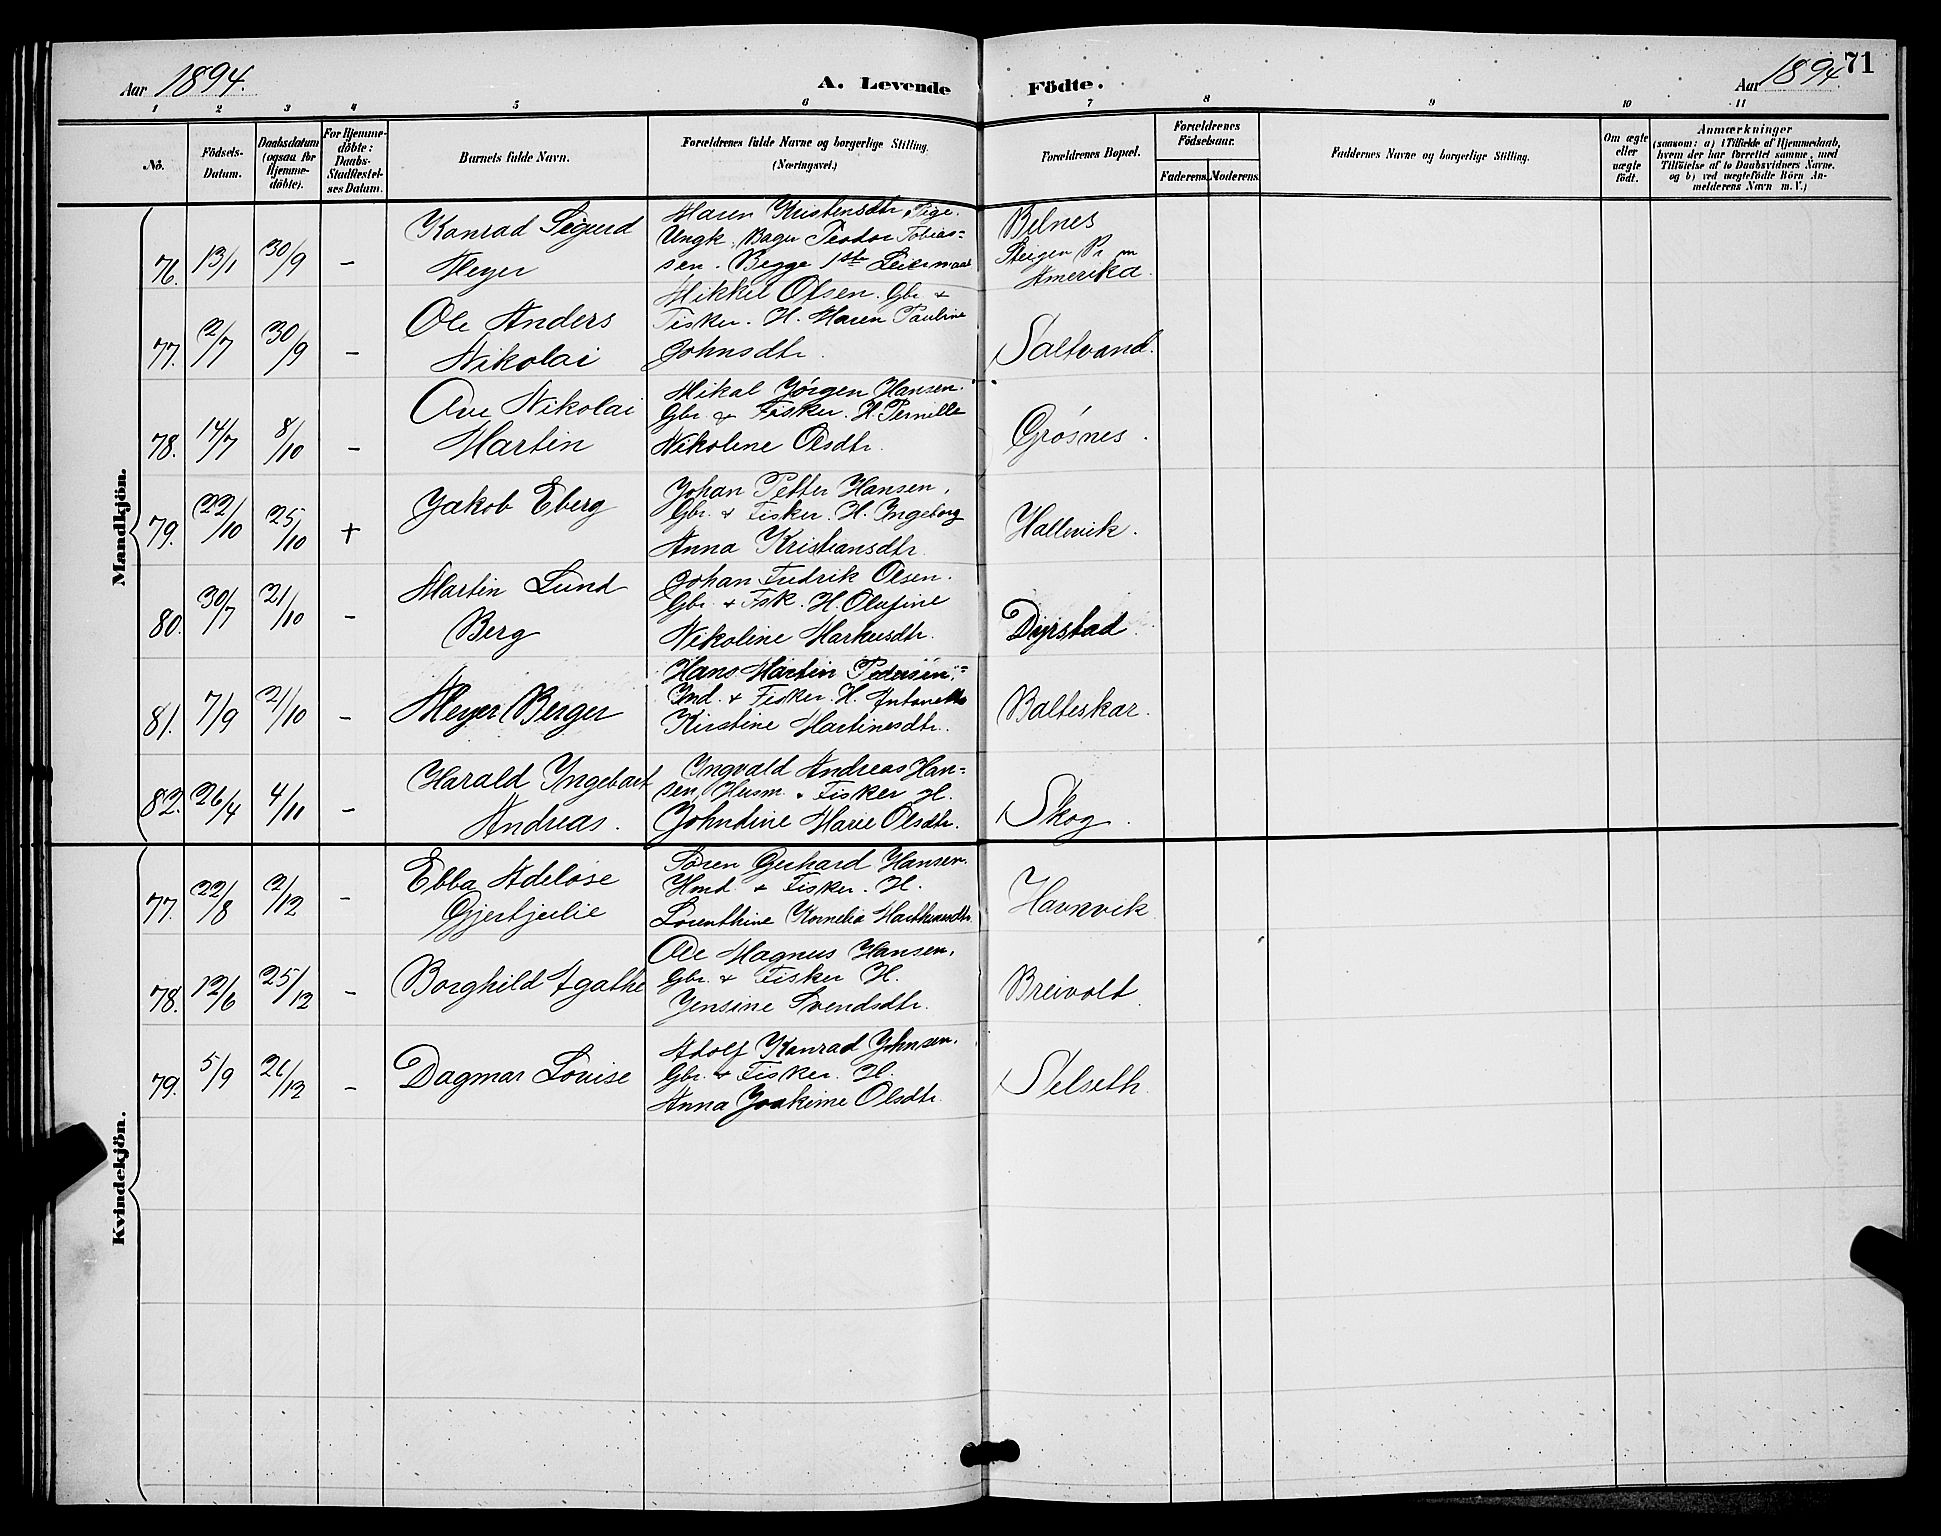 Aar 1894.
A. Levende Födte.
Aar 1894.
71
1 2 3 4 5 6 7 8 9 10 11
No.
Födsels-
Datum.
Daabsdatum
(ogsaa for
Hjemme-
döbte).
For Hjemme-
döbte:
Daabs-
Stadfæstel-
ses Datum.
Barnets fulde Navn.
Forældrenes fulde Navne og borgerlige Stilling.
(Næringsvei.)
Forældrenes Bopæl.
Forældrenes
Födselsaar.
Faderens. Moderens.
Faddernes Navne og borgerlige Stilling.
Om ægte
eller
uægte
födt.
Anmærkninger
(saasom: a) i Tilfælde af Hjemmedaab,
hvem der har forrettet samme, med
Tilföielse af to Daabsvidners Navne,
og b) ved uægtefödte Börn An-
melderens Navn m. V.)
Mandkjön.
76. 13/1 30/9 –
Konrad Sigurd
Meyer
Maren Kristensdtr Pige.
Ungk. Bager Teodor Tobias-
sen. Begge 1ste Leiermaal
Belnes
Steigen Pr.
Amerika.
77. 2/7 30/9 –
Ole Anders
Nikolai
Mikkel Olsen. Gbr. +
Fisker. H. Maren Pauline
Johnsdtr.
Saltvand.
78. 14/7 8/10 –
Ove Nikolai
Martin
Mikal Jörgen Hansen.
Gbr. + Fisker. H. Pernille
Nikoline Olsdtr.
Grøsnes.
79. 22/10 25/10 +
Jakob Eberg
Johan Petter Hansen,
Gbr. + Fisker. H. Ingeborg
Anna Kristiansdtr.
Hallevik.
80. 30/7 21/10 –
Martin Lund
Berg
Johan Fredrik Olsen.
Gbr. + Fsk. H. Olufine
Nikoline Markusdtr.
Dyrstad.
81. 7/9 21/10 –
Meyer Berger
Hans Martin Pedersen,
Ind. + Fisker. H. Antonette
Kirstine Martinesdtr.
Balteskar.
82. 26/4 4/11 –
Harald Ingebart
Andreas.
Ingvald Andreas Han-
sen, Husm. + Fisker H.
Johndine Marie Olsdtr.
Skog.
Kvindekjön.
77. 22/8 2/12 –
Ebba Adelose
Gjertjulie
Sören Gerhard Hansen.
Hmd. + Fisker. H.
Lorenthine Kornelia Marthinusdtr
Havnvik
78. 12/6 25/12 –
Borghild Agathe
Ole Magnus Hansen,
Gbr. + Fisker H.
Jensine Svendsdtr.
Breivolt.
79. 5/9 26/12 –
Dagmar Lovise
Adolf Konrad Johnsen.
Gbr. + Fisker. H.
Anna Joakime Olsdtr.
Selseth